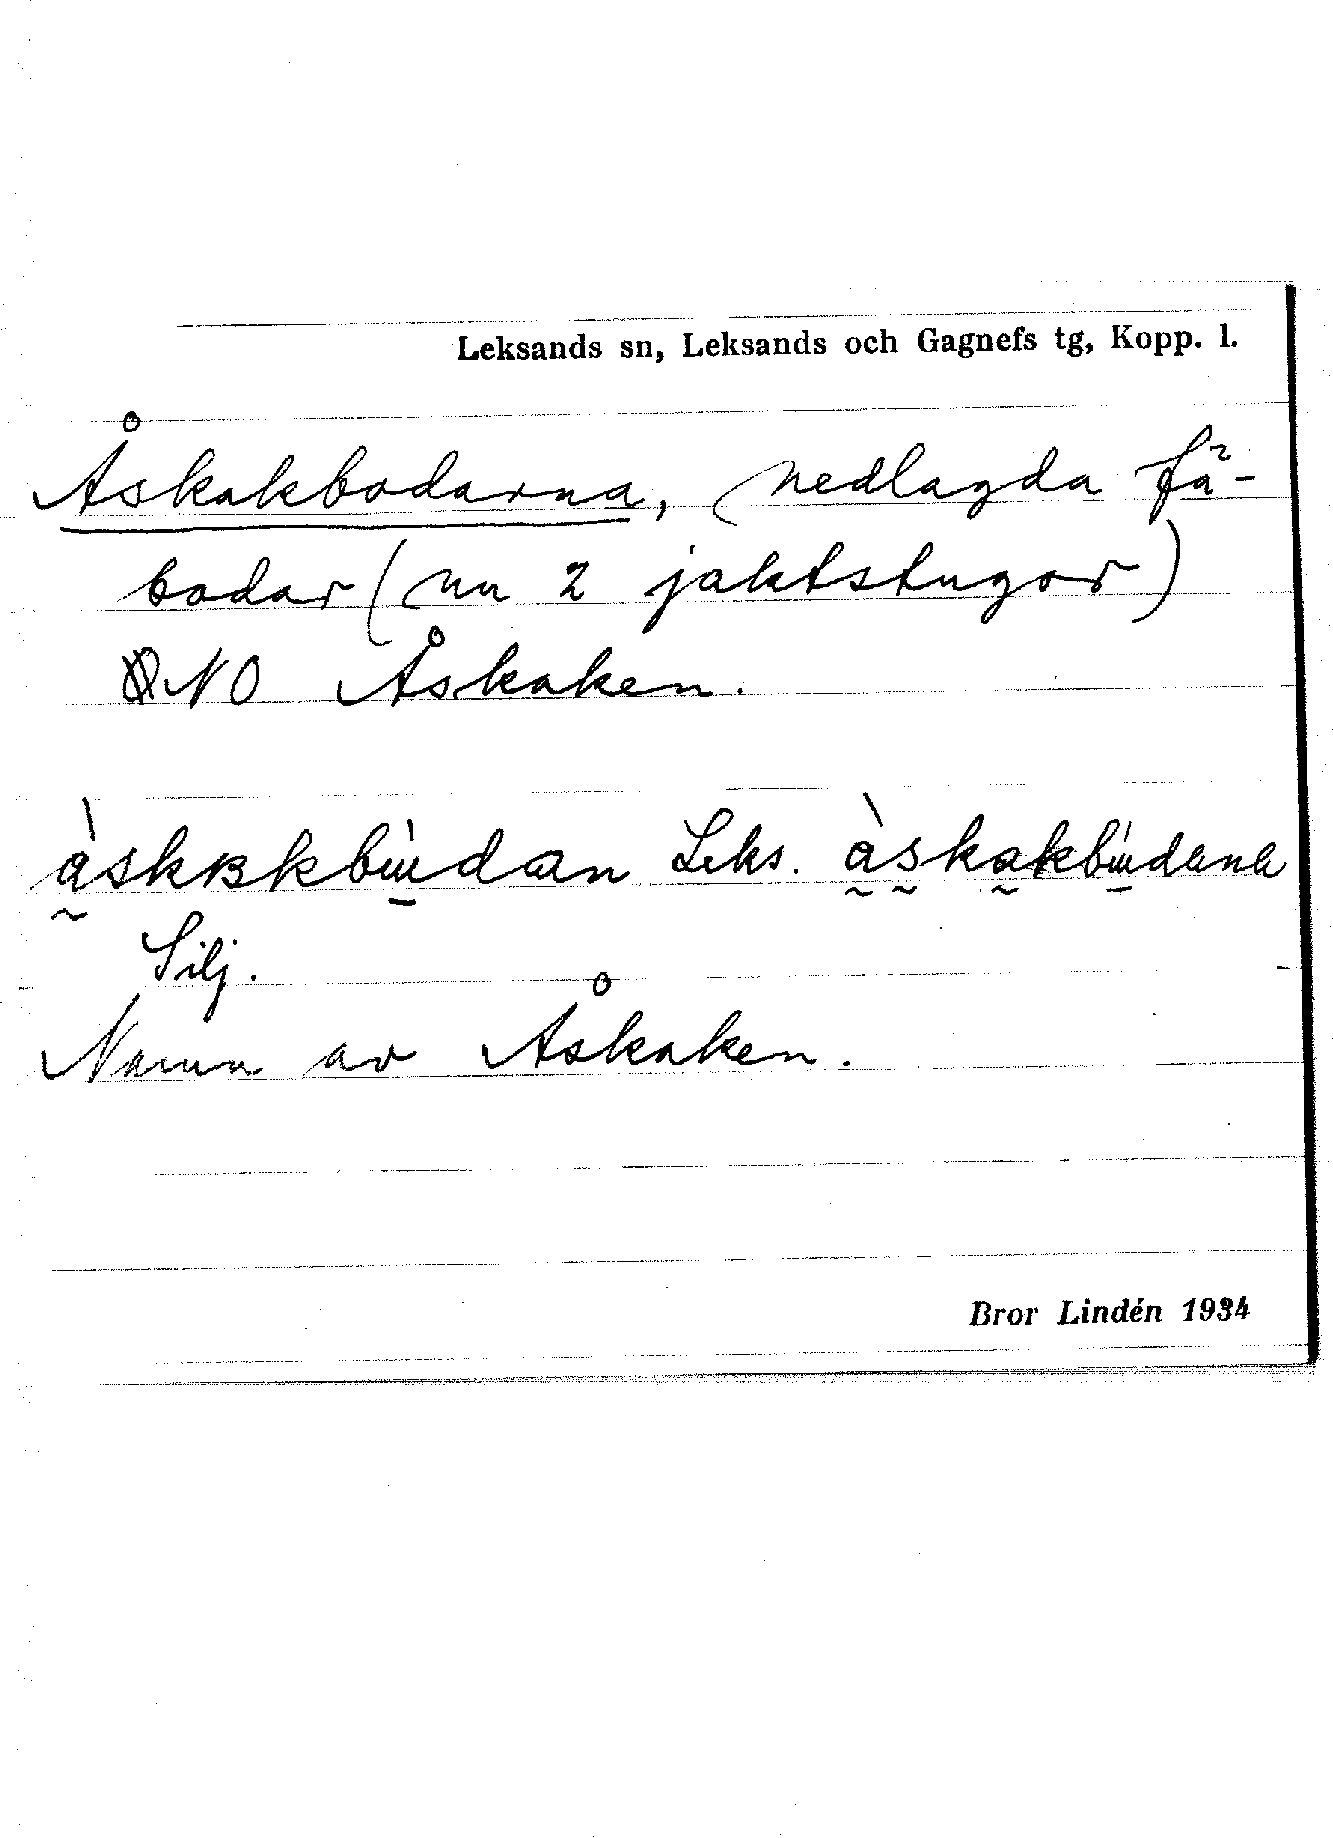 Leksands sn, Leksands och Gagnefs tg, Kopp. l.
Åskakbodarna, nedlagda fä-
bodar (nu 2 jaktstugor)
NO Åskaken.
Leks.
Silj.
Namn av Åskaken.
Bror Lindén 1934